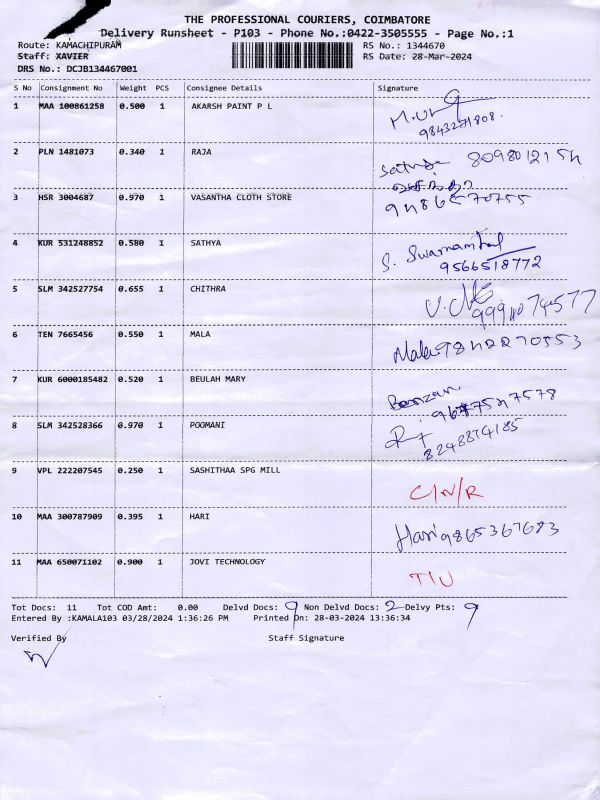 THE PROFESSIONAL COURIERS, COIMBATORE
Delivery Runsheet - P103 - Phone No.:0422-3505555 - Page No.:1
Route: KAMACHIPURAM RS No.: 1344670
Staff: XAVIER RS Date: 28-Mar-2024
DRS No.: DCJB134467001
S No Consignment No Weight PCS Consignee Details Signature
1 MAA 100861258 0.500 1 AKARSH PAINT P L
9843271808.
2 PLN 1481073 0.340 1 RAJA 8098012154
3 HSR 3004687 0.970 1 VASANTHA CLOTH STORE
9486570755
4 KUR 531248852 0.580 1 SATHYA S. Swarnambal
9566518772
5 SLM 342527754 0.655 1 CHITHRA
6 TEN 7665456 0.550 1 MALA Mala 9842270553
7 KUR 6000185482 0.520 1 BEULAH MARY
8 SLM 342528366 0.970 1 POOMANI
8248874185
9 VPL 222207545 0.250 1 SASHITHAA SPG MILL C/N/R
10 MAA 300787909 0.395 1 HARI Hari 9865367683
11 MAA 650071102 0.900 1 JOVI TECHNOLOGY
Tot Docs: 11 Tot COD Amt: 0.00 Delvd Docs: 9 Non Delvd Docs: 2 Delvy Pts: 9
Entered By :KAMALA103 03/28/2024 1:36:26 PM Printed On: 28-03-2024 13:36:34
Verified By Staff Signature